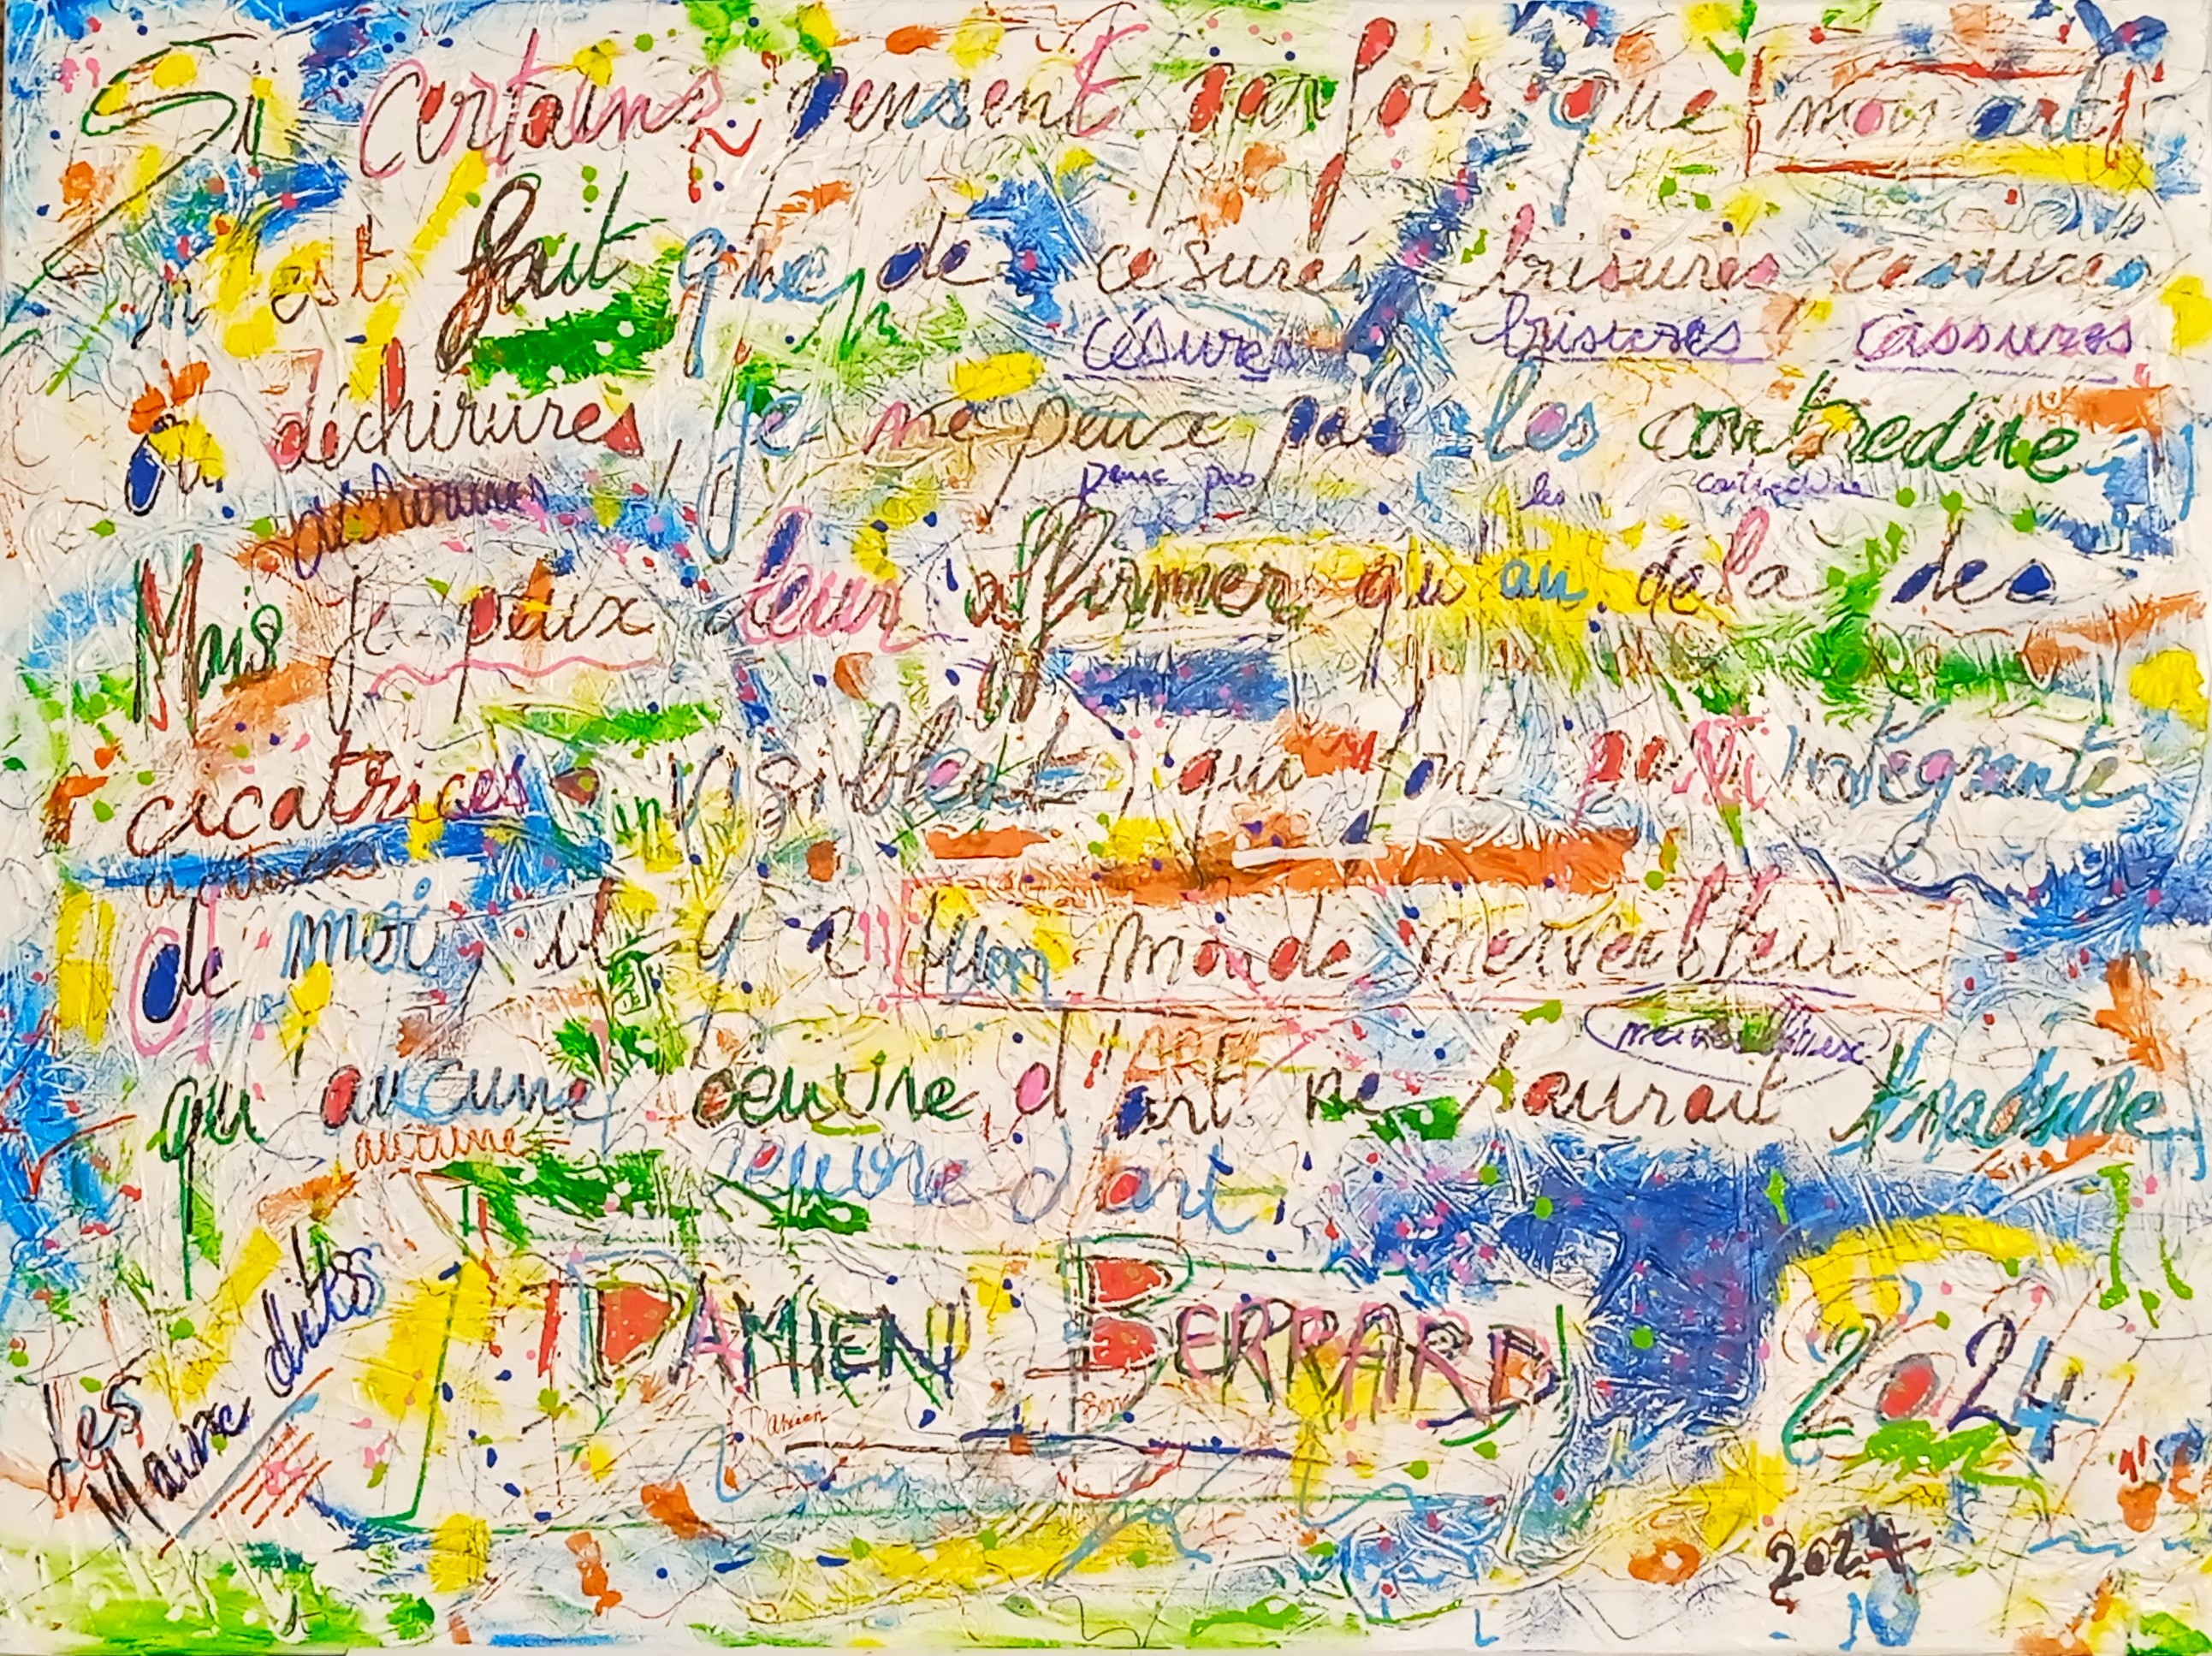 Si certains pensent parfois que mon art
n'est fait que de césures brisures cassures
césures brisures cassures
ou déchirures, je ne peux pas les contredire
déchirures peux pas les contredire
Mais je peux leur affirmer qu'au delà des
cicatrices invisibles, qui font parti intégrante
cicatrices
de moi, il y a un monde merveilleux
merveilleux
qu'aucune oeuvre d'art ne saurait traduire
aucune oeuvre d'art
Les Maux dits
DAMIEN BERRARD 2024
Damien Ber
2024